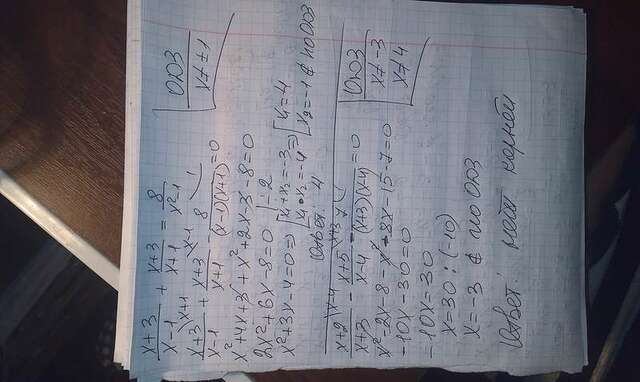 x+3/x-1 + x+3/x+1 = 8/x²-1
ОДЗ
x≠±1
x+3/x-1 \x+1 + x+3/x+1 \x-1 - 8/(x-1)(x+1) \1 =0
x²+4x+3+x²+2x-3-8=0
2x²+6x-8=0 |:2
x²+3x-4=0 => [x₁+x₂=-3 x₁•x₂=-4 => [x₁=4 x₂=-1 ∉ по ОДЗ
Ответ: 4
x+2/x+3 \x-4 - x+5/x-4 \x+3 - 7/(x+3)(x-4) =0
ОДЗ
x≠-3
x≠4
x²-2x-8-x²-8x-15-7=0
-10x-30=0
-10x=30
x=30:(-10)
x=-3 ∉ по ОДЗ
Ответ: нет корней